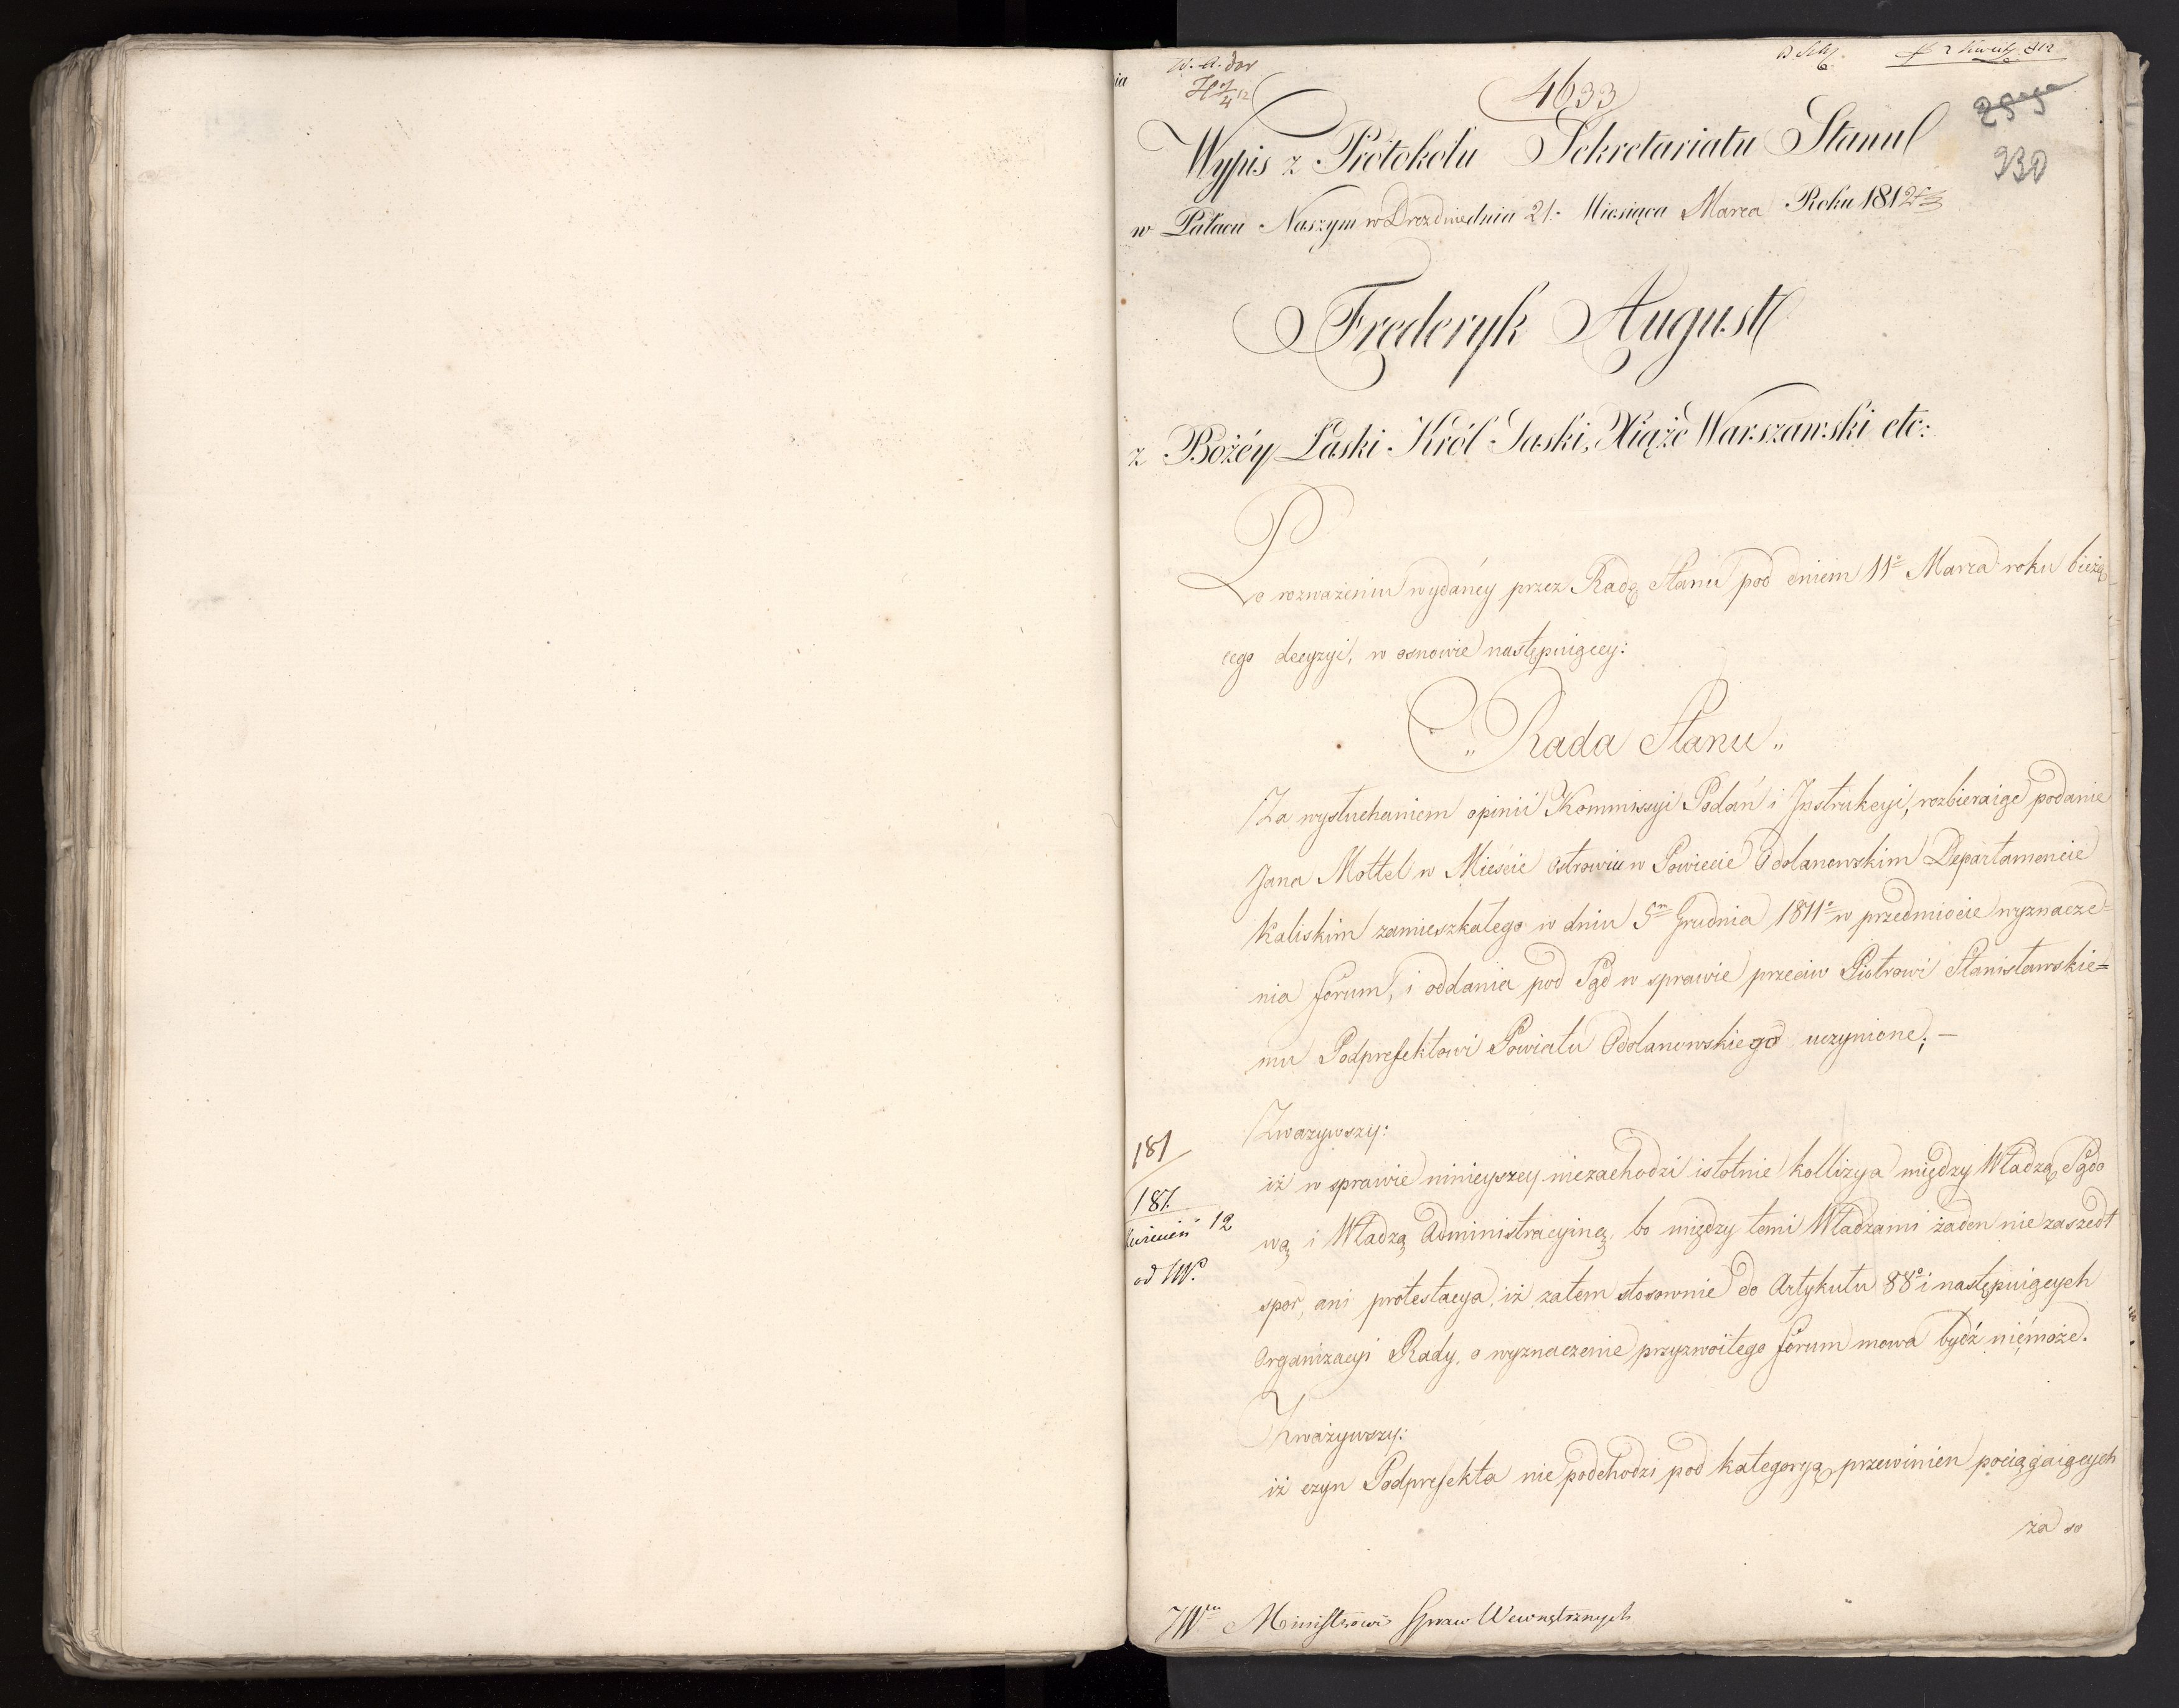 4633
Wypis z Protokołu Sekretariatu Stanu
w Pałacu Naszym w Dreźnie dnia 21. Miesiąca Marca Roku 1812
930
Frederyk August
z Bożéy Łaski Król Saski, Xiąże Warszawski etc:
Po rozważeniu wydanéy przez Radę Stanu pod dniem 11º Marca roku bieżą-
cego decyzyi, w osnowie następuiącey:
„Rada Stanu„
Za wysłuchaniem opinii Kommissyi Podań i Instrukcyi, rozbieraiąc podanie
Jana Mottel w Mieście Ostrowiu w Powiecie Odolanowskim Departamencie
Kaliskim zamieszkałego w dniu 5m Grudnia 1811º w przedmiocie wyznacze=
nia forum, i oddania pod Sąd w sprawie przeciw Piotrowi Stanisławskie=
mu Podprefektowi Powiatu Odolanowskiego uczynione; —
Zważywszy:
iż w sprawie ninieyszey niezachodzi istotnie kollizya między Władzą Sądo
wą i Władzą Administracyiną, bo między temi Władzami żaden nie zaszedł
spór, ani protestacya, iż zatem stosownie do Artykułu 88º i następuiących
Organizacyi Rady, o wyznaczenie przyzwoitego forum mowa bydź niemoże.
Zważywszy:
iż czyn Podprefekta nie podchodzi pod kategoryą przewinień pociągaiących
za so
181
187.
12
od JW.
JWmu Ministrowi Spraw Wewnętrznych